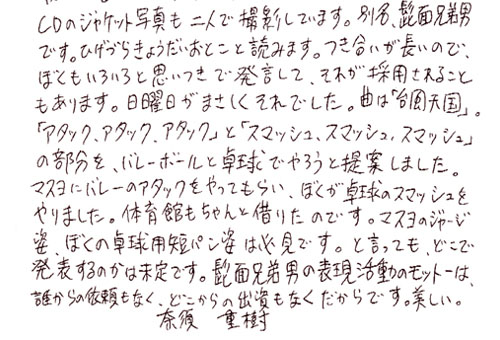 CDのジャケット写真も二人で撮影しています。別名、髭面兄弟男
です。ひげづらきょうだいおとこと読みます。つき合いが長いので、
ぼくもいろいろと思いつきで発言して、それが採用されること
もあります。日曜日がまさしくそれでした。曲は「台風天国」。
「アタック、アタック、アタック」と「スマッシュ、スマッシュ、スマッシュ」
の部分を、バレーボールと卓球でやろうと提案しました。
マスヨにバレーのアタックをやってもらい、ぼくが卓球のスマッシュを
やりました。体育館もちゃんと借りたのです。マスヨのジャージ
姿、ぼくの卓球用短パン姿は必見です。と言っても、どこで
発表するのかは未定です。髭面兄弟男の表現活動のモットーは、
誰からの依頼もなく、どこからの出資もなくだからです。美しい。
奈須 重樹